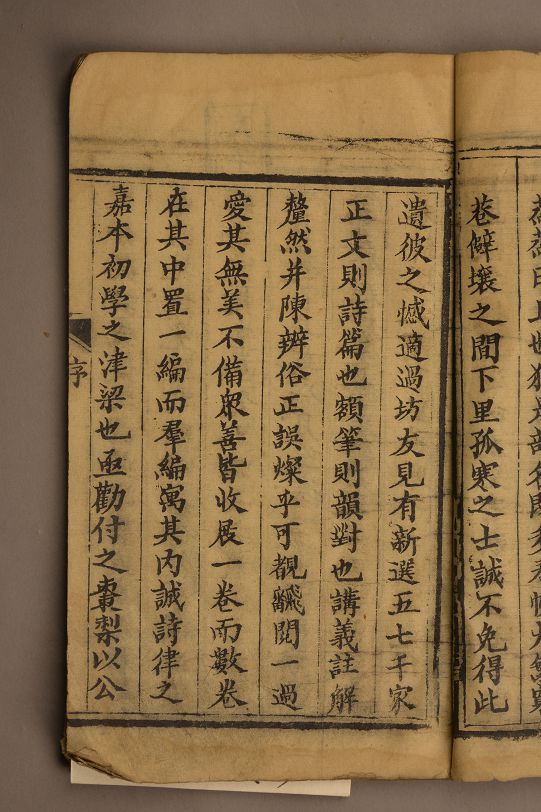 巷僻壤之間下里孤寒之士誠不免得此
遺彼之憾適過坊友見有新選五七千家
正文則詩篇也額筆則韻對也講義註解
釐然并陳辨俗正誤燦乎可觀飜閱一過
愛其無美不備眾善皆收展一卷而數卷
在其中置一編而羣編寓其內誠詩律之
嘉本初學之津梁也亟勸付之棗梨以公
序